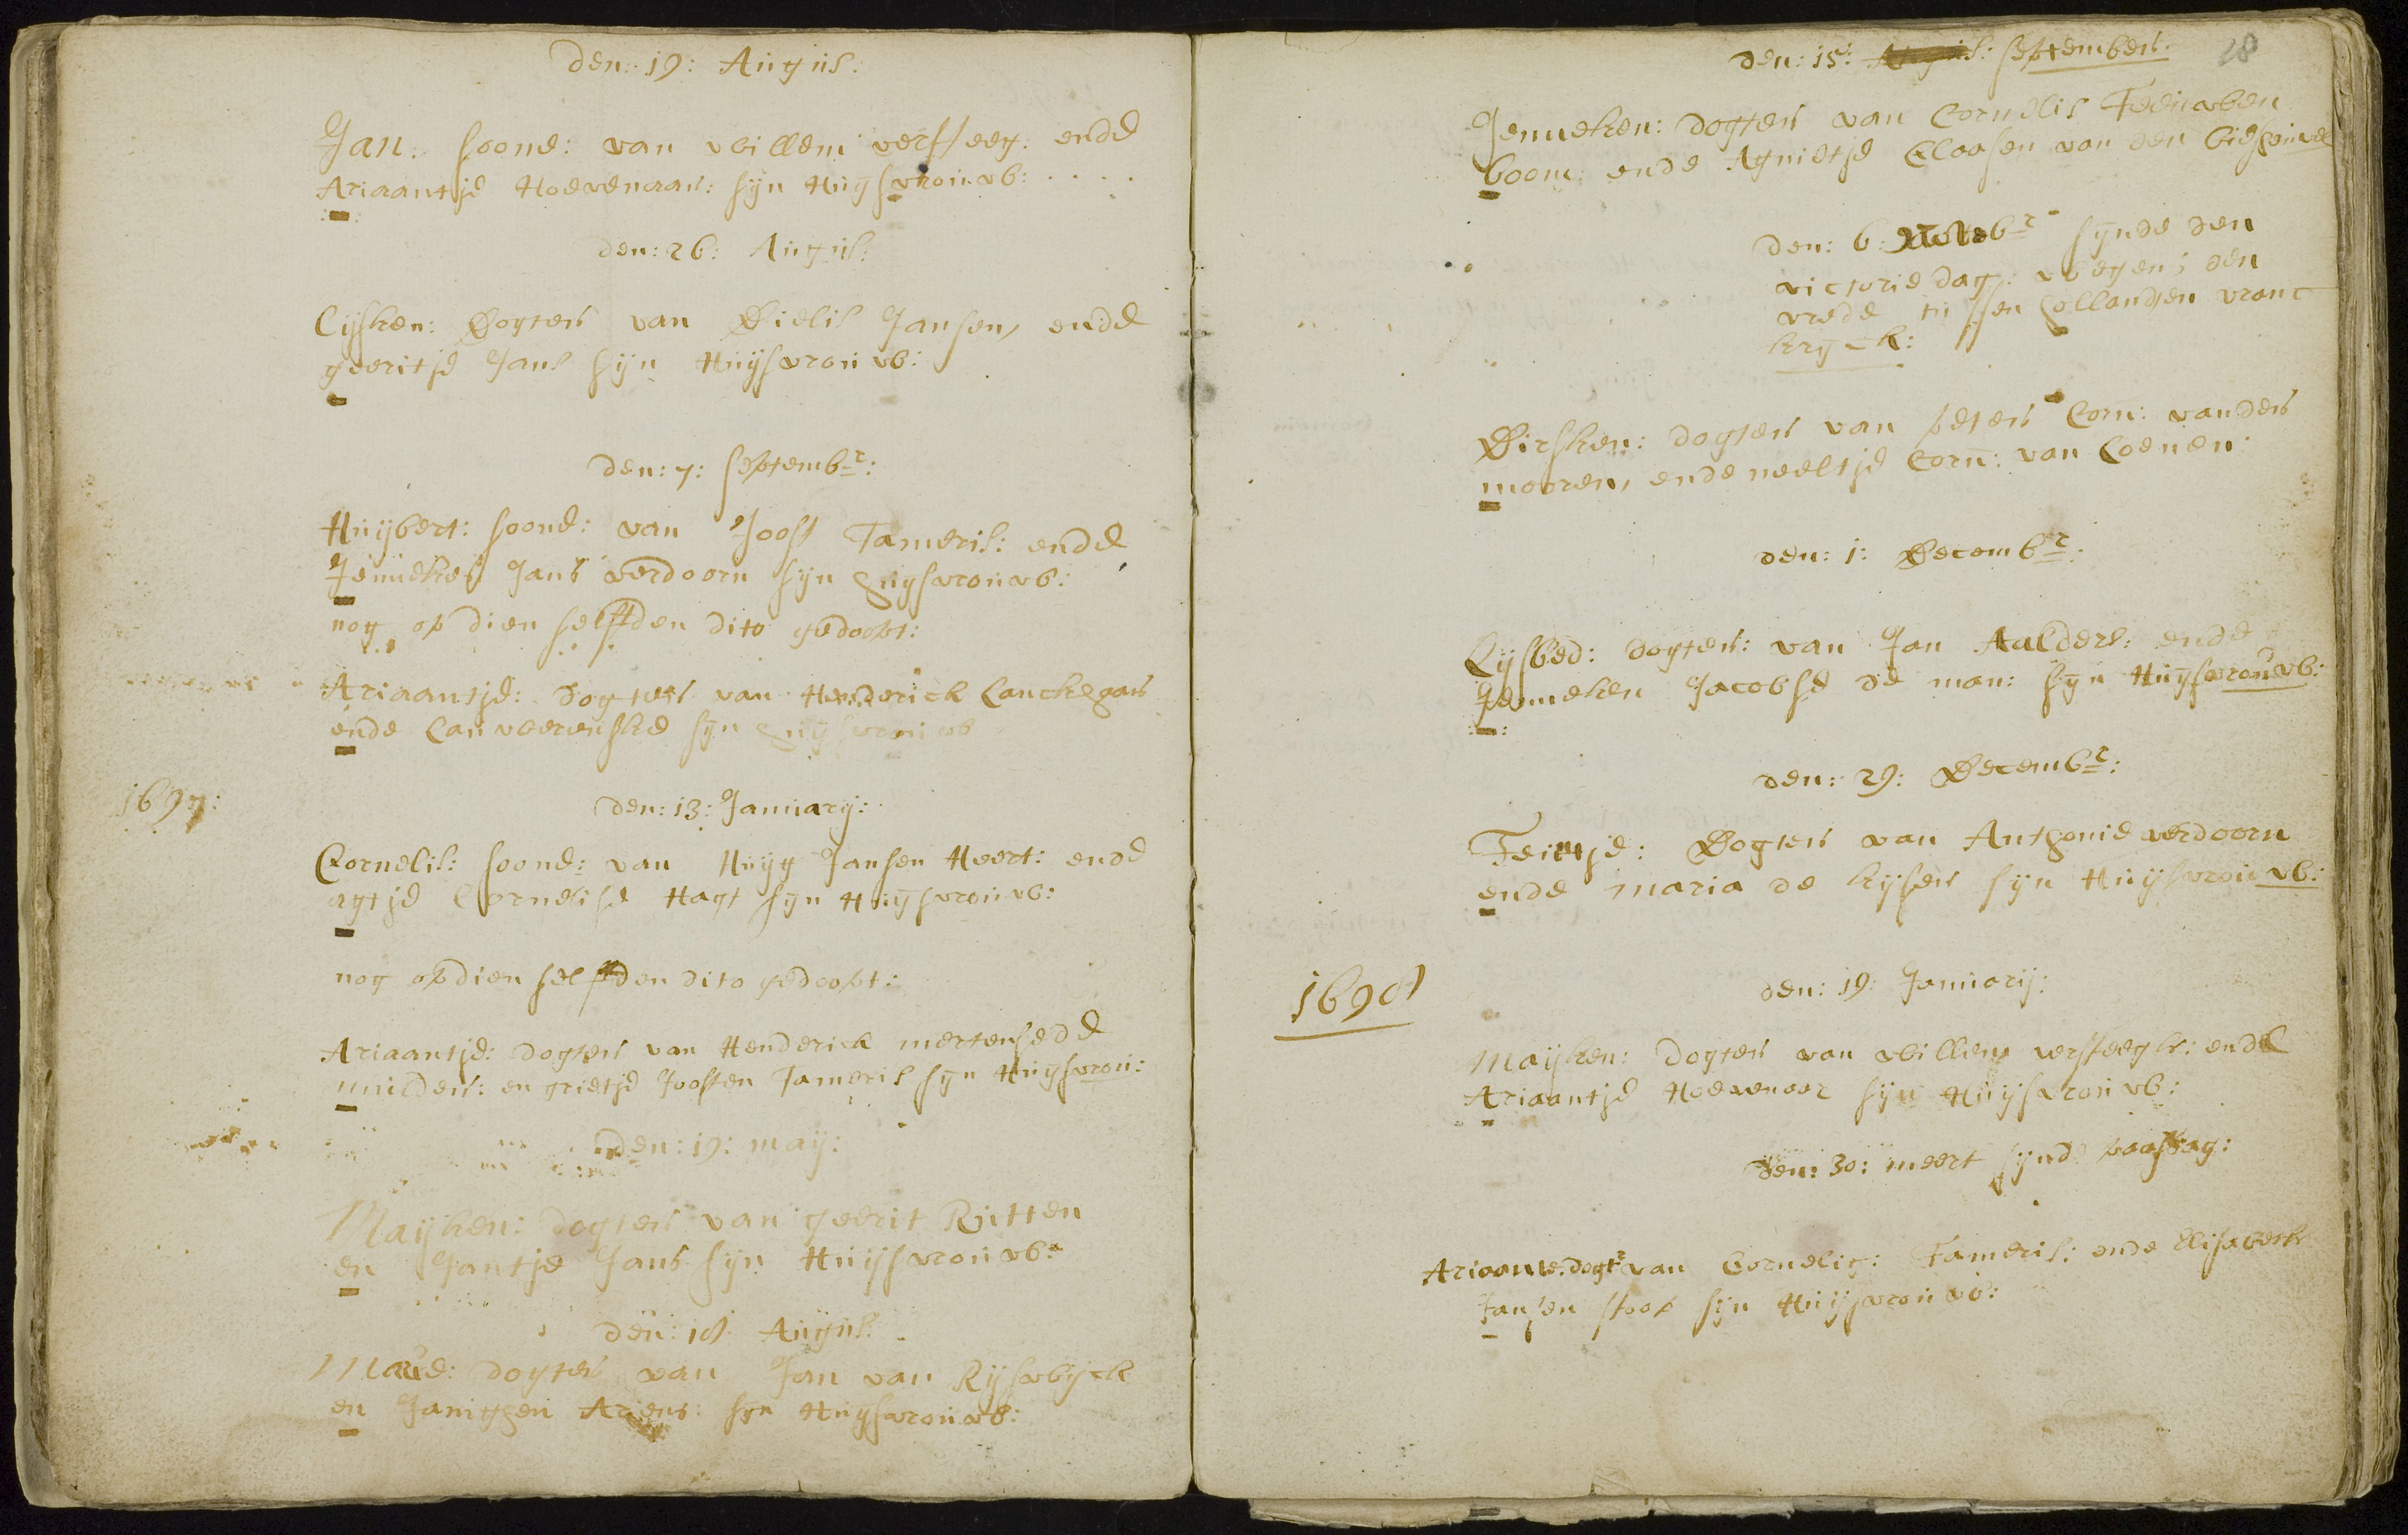 den: 19: Augus:
Jan. soone: van Willem versteeg: ende
Ariaantje Hoevenaar: sijn Huijsvrouw: . . . .
den: 26: Augus:
Lijsken: Dogter van Dielis Jansen, ende
geeritje Jans sijn Huijsvrouw:
den: 7: septembr:
Huijbert: soone: van Joost Tameris: ende
Jenneken Jans verdoorn sijn huijsvrouw:
nog op dien selfden dito gedoopt:
Ariaantje: dogter van Henderick
ende sijn huijsvrouw
1697:
den: 13: Januarij:
Cornelis: soone: van Huijg Jansen Heert: ende
agtje Cornelisse Hagt sijn Huijsvrouw:
nog op dien selfden dito gedoopt:
Ariaantje: dogter van Henderick mertense de
mulder: en grietje Joosten Tameris sijn Huijsvrou:
den: 19: maij:
Maijken: dogter van geerit Rutten
en Jantje Jans sijn Huijsvrouw:
den: 18: Augus:
dogter van Jan van Rijswijck
en Janigjen Ariens: sijn Huijsvrouw:
28
den: 15: september:
Jenneken: dogter van Cornelis Teeuwben
boom: ende Agnietje Claasen van den
den: 6: br sijnde den
victorie dag: wegens den
vrede tussen hollandt en vranc
krijck:
Dirsken: dogter van peter Corn: vander
mooren, ende neeltje Corn: van Coenen:
den: 1: Decembr:
Lijsbed: dogter: van Jan Aalders: ende
Jenneken Jacobse de man: sijn Huijsvrouw:
den: 29: Decembr:
Dogter van Anthonie verdoorn
ende maria de kijser sijn Huijsvrouw:
1698
den: 19: Januarij:
Maijken: dogter van Willem versteegh: ende
Ariaantje Hoevenaar sijn Huijsvrouw:
den: 30: meert sijnde paasdag:
Ariaante: dogtr van Cornelis: Tameris: ende Elisabeth
Jansen stoop sijn Huijsvrouw: